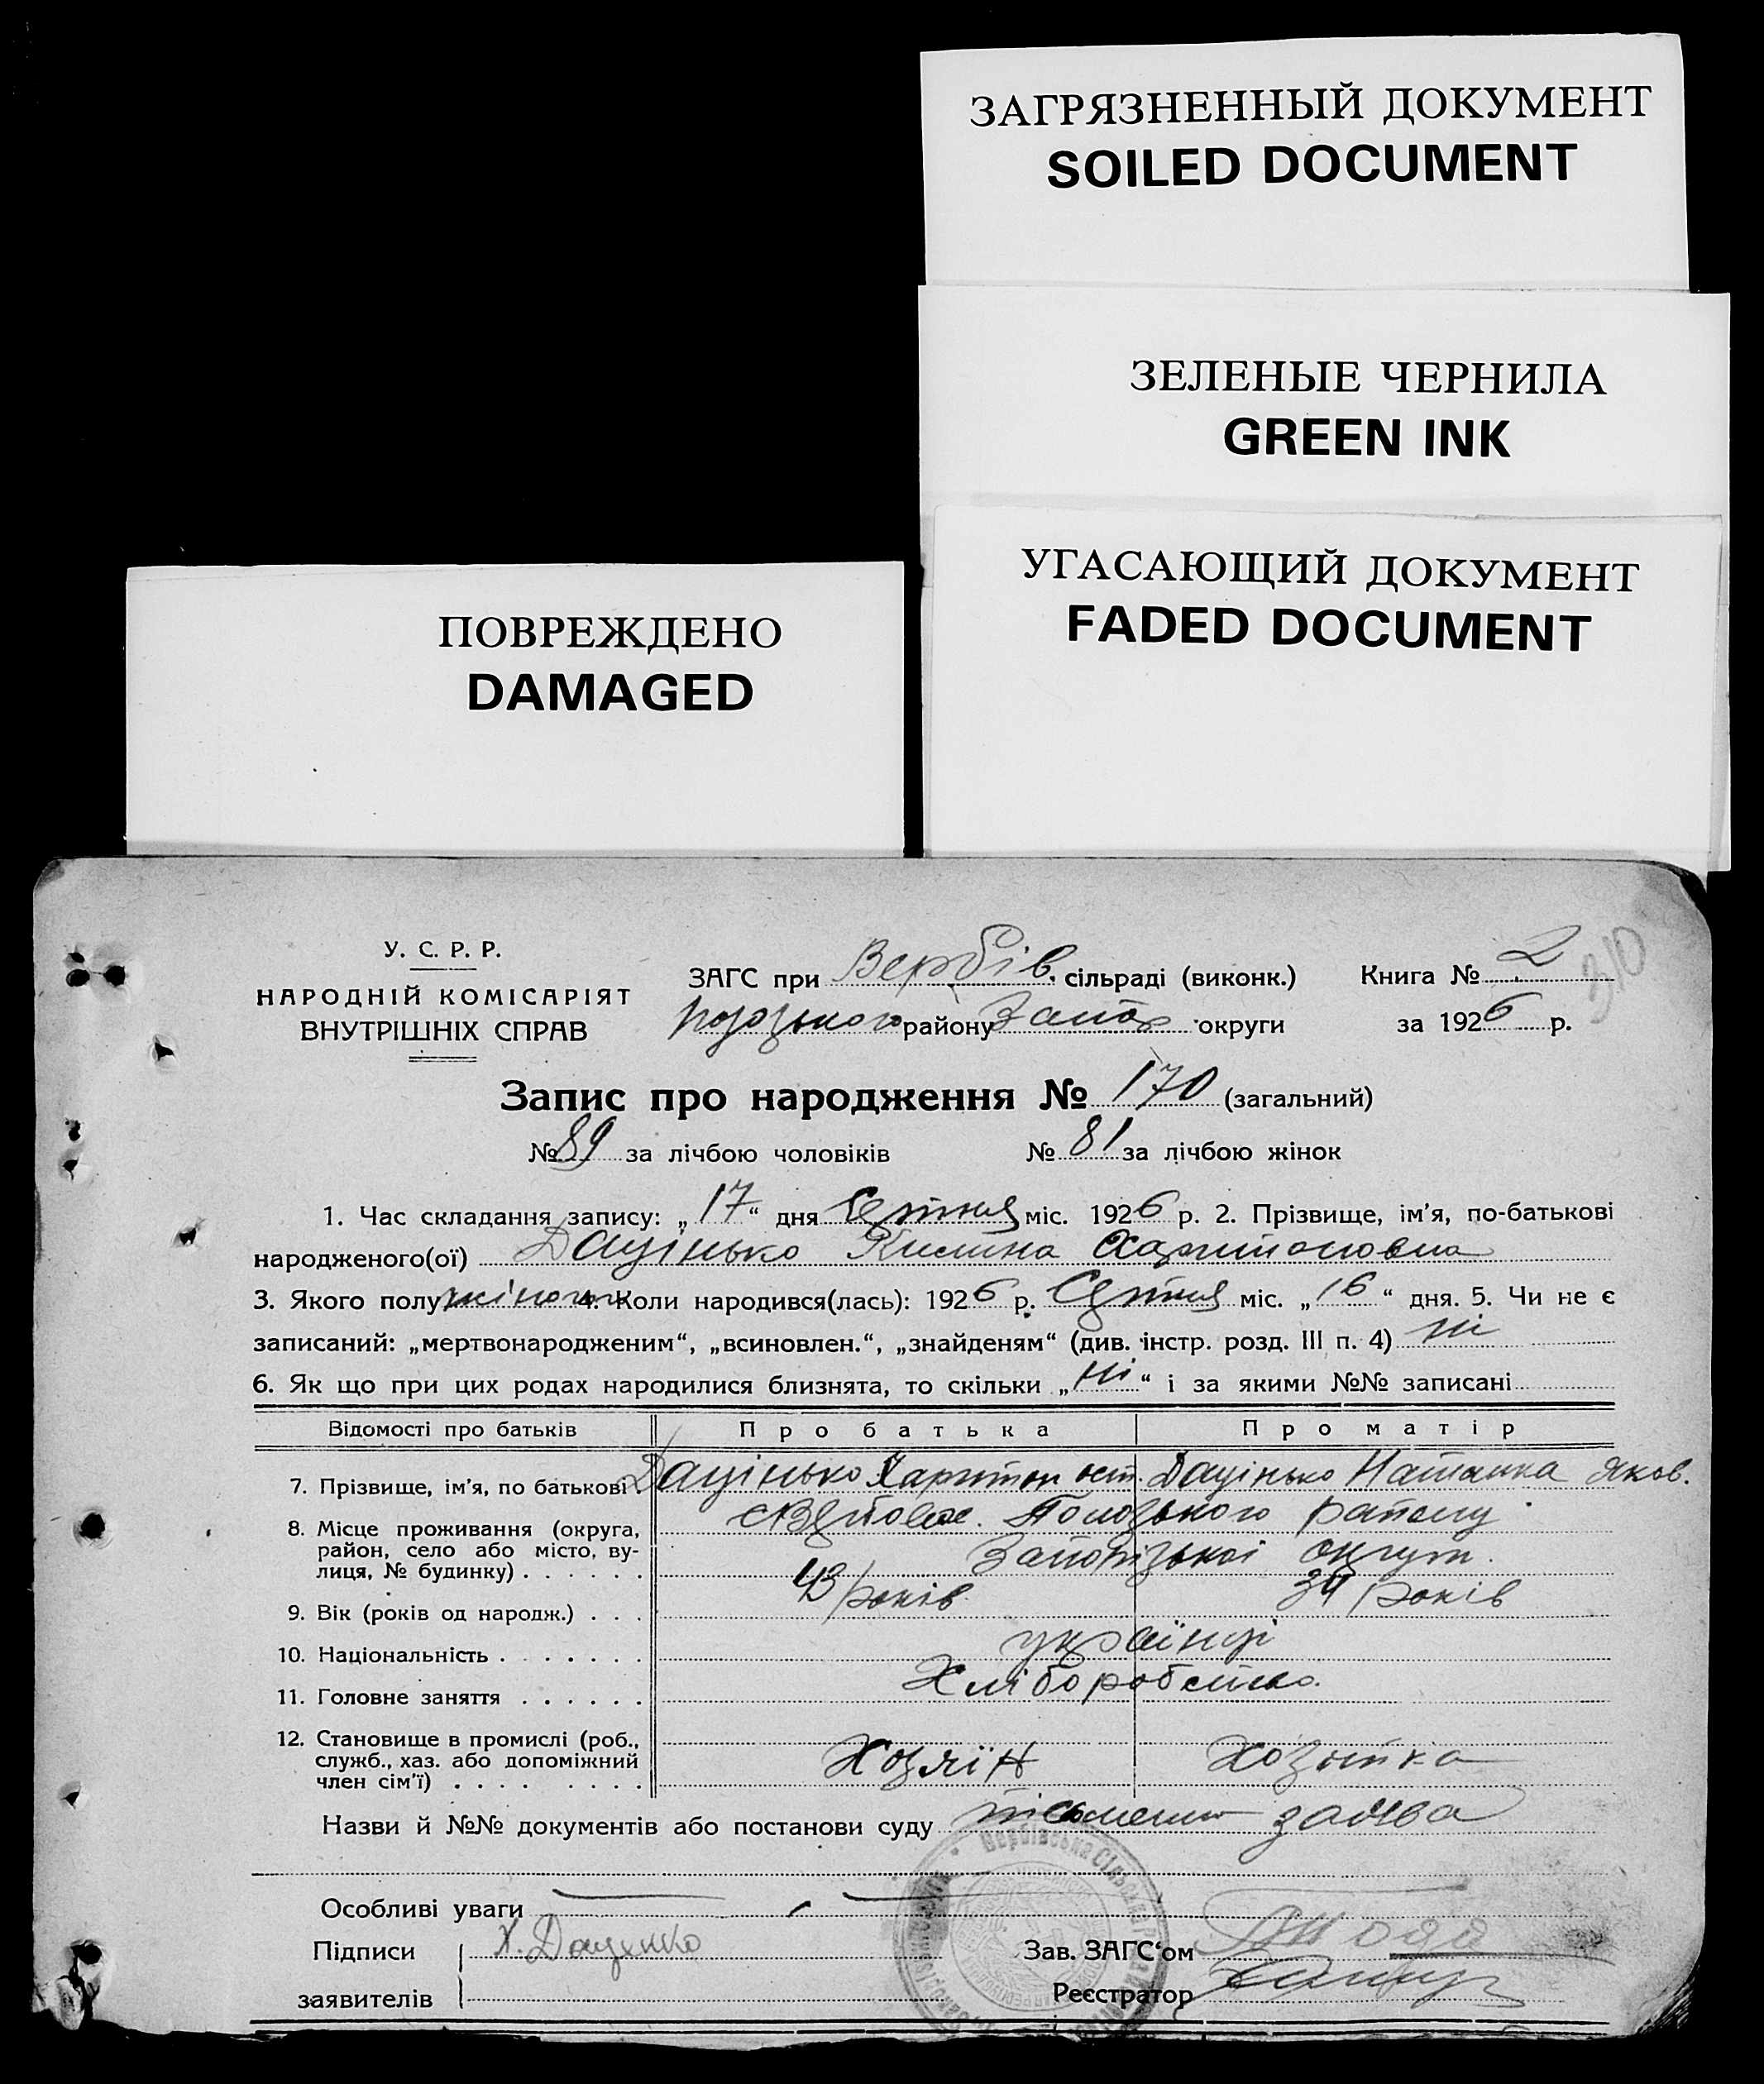 ЗАГРЯЗНЕННЫЙ ДОКУМЕНТ
SOILED DOCUMENT
ЗЕЛЕНЫЕ ЧЕРНИЛА
GREEN INK
УГАСАЮЩИЙ ДОКУМЕНТ
FADED DOCUMENT
ПОВРЕЖДЕНО
DAMAGED
У. С. Р. Р.
НАРОДНІЙ КОМІСАРІЯТ
ВНУТРІШНІХ СПРАВ
ЗАГС при Вербів. сільраді (виконк.)
району Запор округи
Книга № 2
за 1926 р.
310
Запис про народження № 170 (загальний)
№ 89 за лічбою чоловіків № 81 за лічбою жінок
1. Час складання запису: „17“ дня міс. 1926 р. 2. Прізвище, ім’я, по-батькові
народженого(ої) Дацінько Килина Харитоновна
3. Якого полу жіночої 4. Коли народився(лась): 1926 р. міс. „16“ дня. 5. Чи не є
записаний: „мертвонародженим“, „всиновлен.“, „знайденям“ (див. інстр. розд. III п. 4) ні
6. Як що при цих родах народилися близнята, то скільки „ні“ і за якими №№ записані
Відомості про батьків Про батька Про матір
7. Прізвище, ім’я, по батькові. Дацінько Харитон ост. Дацінько Наталка Яков.
8. Місце проживання (округа, район, село або місто, вулиця, № будинку) Пологзького району
Запорізької округи.
9. Вік (років од народж.) 43 років 34 років
10. Національність українці
11. Головне заняття Хліборобство.
12. Становище в промислі (роб., служб., хаз. або допоміжний член сім’ї) Хозяїн Хозяйка
Назви й №№ документів або постанови суду письменно заява
Особливі уваги
Підписи Х. Даценко
заявителів
Зав. ЗАГС‘ом
Реєстратор
Вербівська Сільська